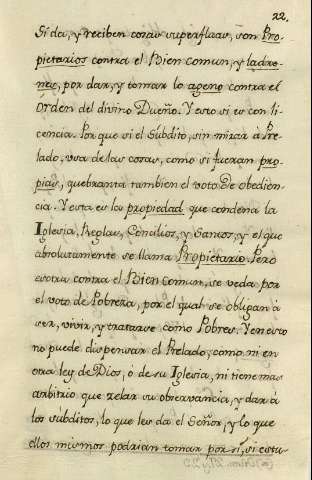 22.
Si da, y reciben cosas superfluas, son Pro-
pietarios contra el Bien comun, y ladro-
nes, por dar, y tomar lo ageno contra el
orden del divino Dueño. Y esto si es con li-
cencia. Porque si el Subdito, sin mirar à Pre-
lado, usa de las cosas, como si fueran pro-
pias, quebranta tambien el voto de obediën-
cia. Y esta es la propiedad que condena la
Iglesia, Reglas, Concilios, y Santos, y el que
absolutamente se llama Propietario. Pero
esotra contra el Bien comun, se veda por
el voto de Pobreza, por el qual se obligan à
ser, vivir, y tratarse como Pobres. Y en esto
no puede dispensar el Prelado, como ni en
otra ley de Dios, ò de su Iglesia, ni tiene mas
arbitrio que zelar su observancia, y dar à
los subditos, lo que les da el Señor, y lo que
ellos mismos podrian tomar por sí, si estu-